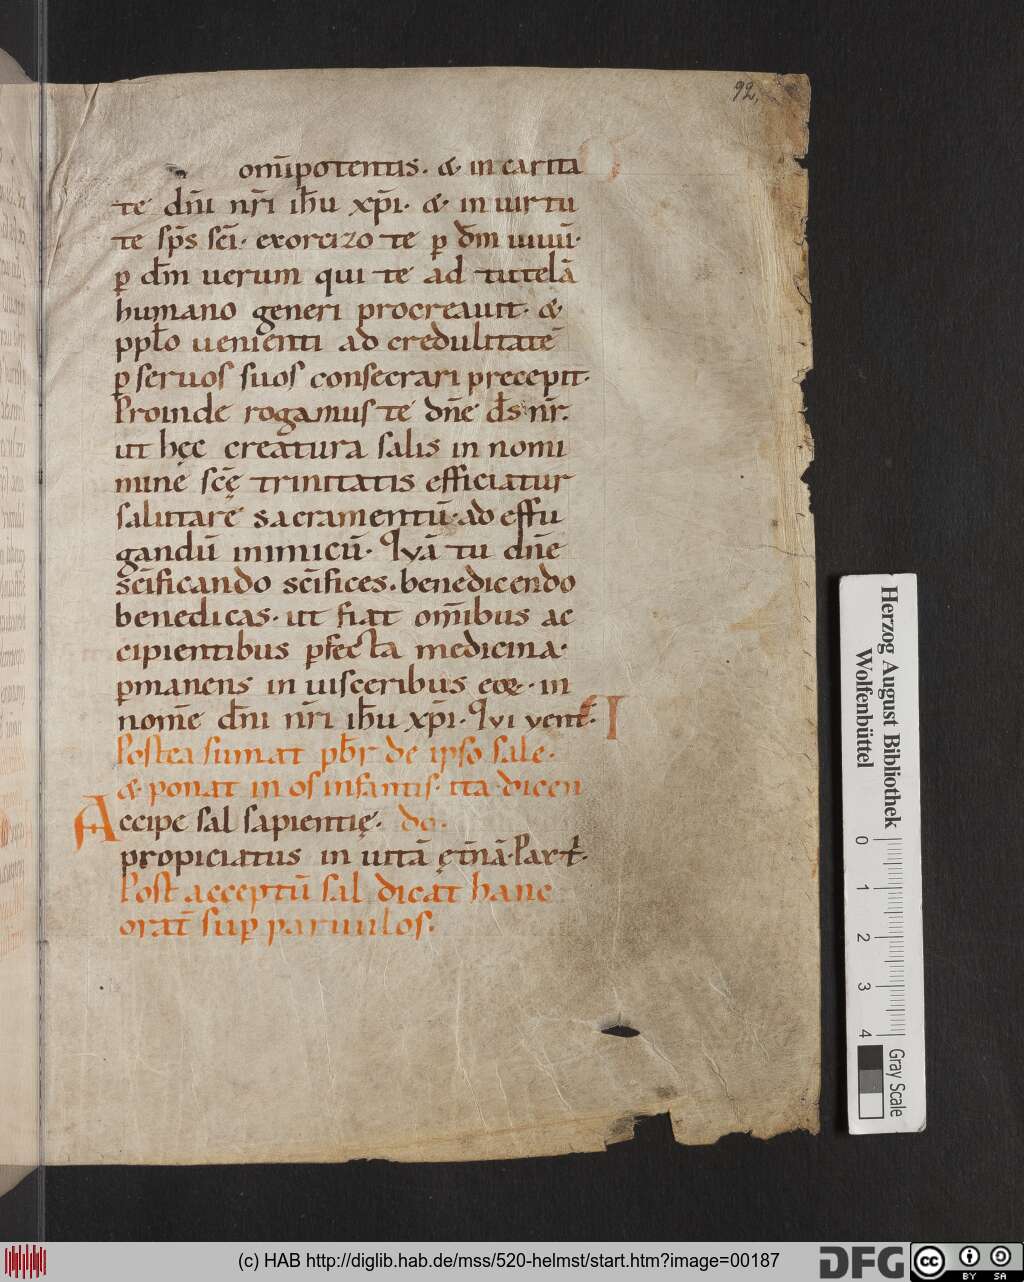 92,
om̅ipotentis. & in carita
te dn̅i nr̅i ih̅u xp̅i. & in uirtu
te sp̅s sc̅i. exorcizo te ꝑ dm̅ uiuū.
ꝑ dm̅ uerum qui te ad tutelā
humano generi procreauit. &
pplo̅ uenienti ad credulitatē
ꝑ seruos suos consecrari precepit.
Proinde rogamus te dn̅e ds̅ nr̅.
ut hęc creatura salis in nomi
mine scę̅ trinitatis efficiatur
salutare sacramentū. ad effu
gandū inimicū. Qvā tu dn̅e
sc̅ificando sc̅ifices. benedicendo
benedicas. ut fiat om̅ibus ac
cipientibus ꝑfecta medicina.
ꝑmanens in uisceribus eoꝝ. in
nom̅e dn̅i nr̅i ih̅u xp̅i. Qvi vent̅.
Postea sumat pb̅r de ipso sale.
& ponat in os infantis. ita dicen
Accipe sal sapientię. do.
propiciatus in uitā ęt̅nā. Pax t̅.
Post acceptū sal dicat hanc
orat̅ suꝑ paruulos.
Herzog August Bibliothek
Wolfenbüttel
0 1 2 3 4
Gray Scale
(c) HAB http://diglib.hab.de/mss/520-helmst/start.htm?image=00187
DFG
cc BY SA